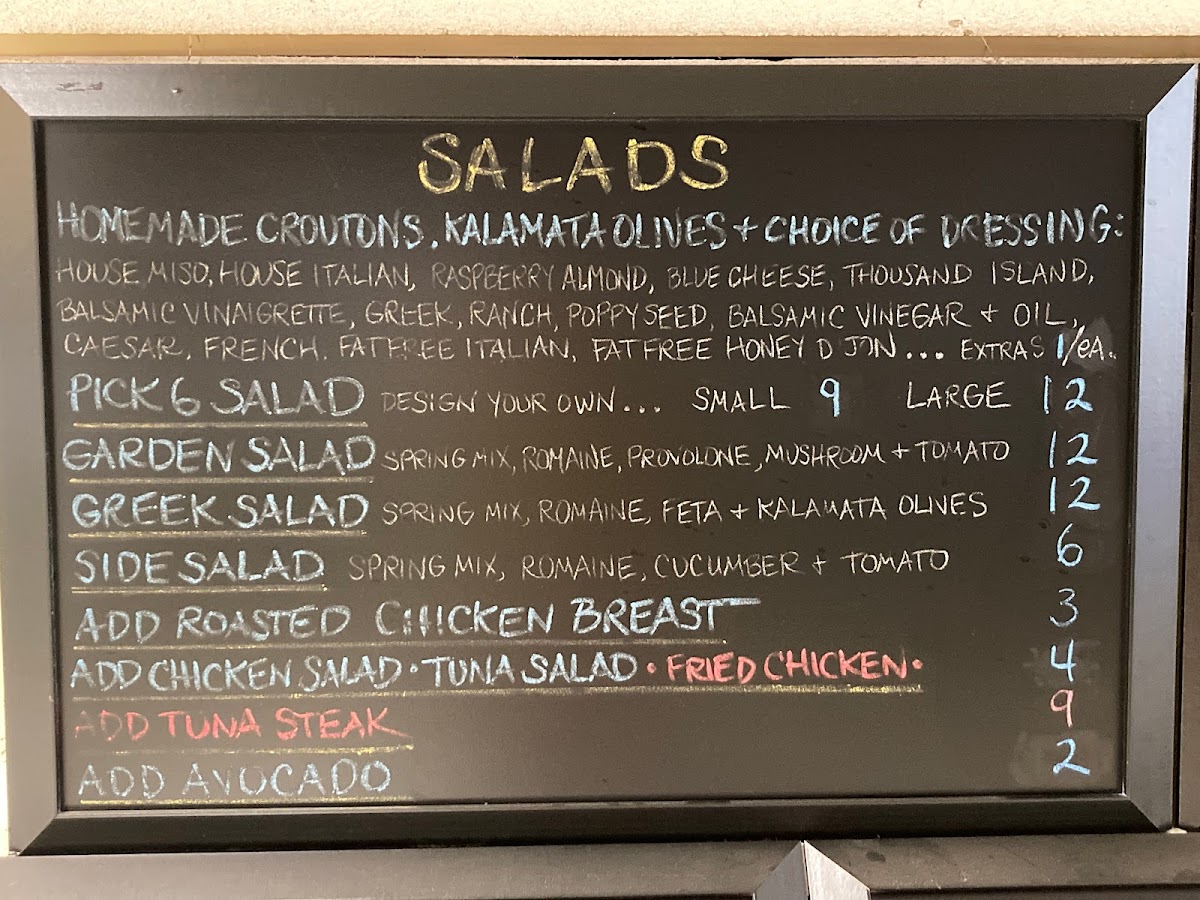 SALADS
HOMEMADE CROUTONS, KALAMATA OLIVES + CHOICE OF DRESSING:
HOUSE MISO, HOUSE ITALIAN, RASPBERRY ALMOND, BLUE CHEESE, THOUSAND ISLAND,
BALSAMIC VINAIGRETTE, GREEK, RANCH, POPPYSEED, BALSAMIC VINEGAR + OIL,
CAESAR, FRENCH. FAT FREE ITALIAN, FAT FREE HONEY D JON... EXTRAS 1/EA..
PICK 6 SALAD DESIGN YOUR OWN... SMALL 9 LARGE 12
GARDEN SALAD SPRING MIX, ROMAINE, PROVOLONE, MUSHROOM + TOMATO 12
GREEK SALAD SPRING MIX, ROMAINE, FETA + KALAMATA OLIVES 12
SIDE SALAD SPRING MIX, ROMAINE, CUCUMBER + TOMATO 6
ADD ROASTED CHICKEN BREAST 3
ADD CHICKEN SALAD • TUNA SALAD • FRIED CHICKEN • 4
ADD TUNA STEAK 9
ADD AVOCADO 2